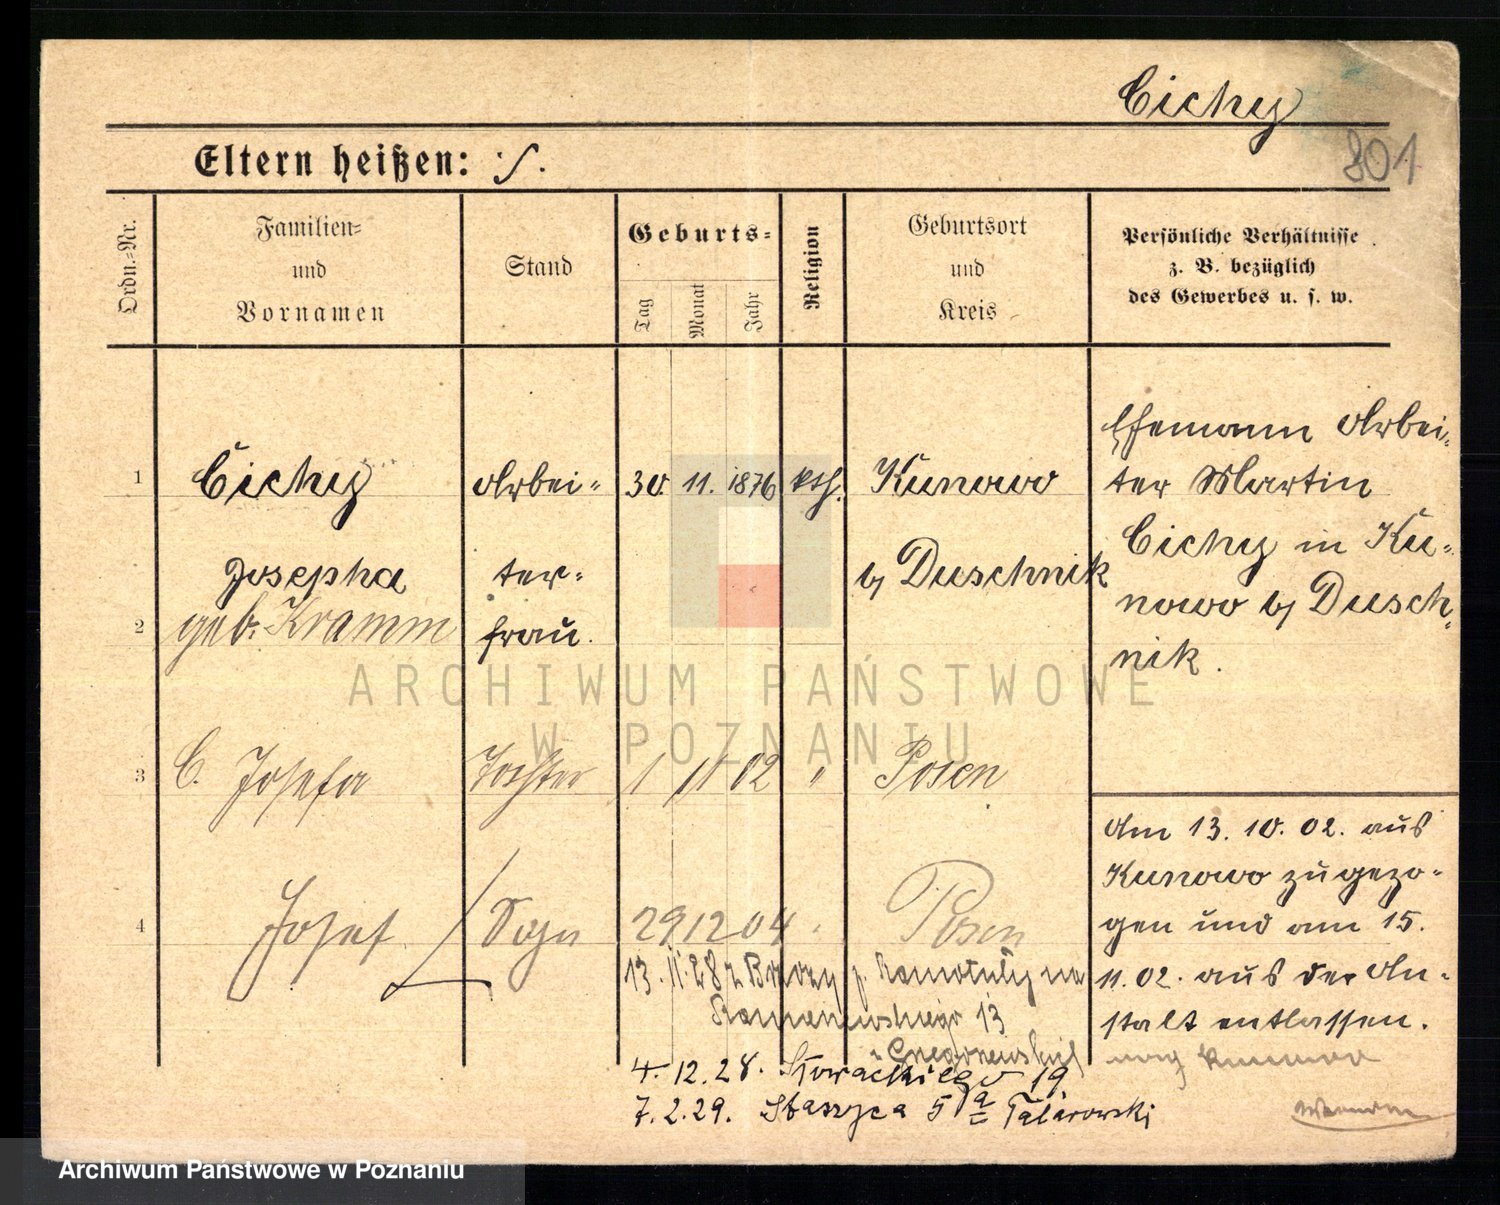 Cichy
801
Eltern heißen: ./.
Ordn.-Nr.
Familien-
und
Vornamen
Stand
Geburts-
Tag
Monat
Jahr
Religion
Geburtsort
und
Kreis
Persönliche Verhältnisse
z. B. bezüglich
des Gewerbes u. s. w.
1 Cichy Arbei- 30. 11. 1876 kth. Kunowo
Josepha ter- b/ Duschnik
2 geb. Kramm frau.
Ehemann Arbei-
ter Martin
Cichy in Ku-
nowo b/ Dusch-
nik.
3 C. Josefa Tochter 1 11 02 " Posen
4 Josef Sohn 29 12 04 " Posen
Am 13. 10. 02. aus
Kunowo zugezo-
gen und am 15.
11. 02. aus der An-
stalt entlassen.
nach Kunowo
13. 11. 28 z p. Szamotuły na
13
4. 12. 28. Słowackiego 19
7. 2. 29. Staszyca 5 Talarowski
ARCHIWUM PAŃSTWOWE
W POZNANIU
Archiwum Państwowe w Poznaniu